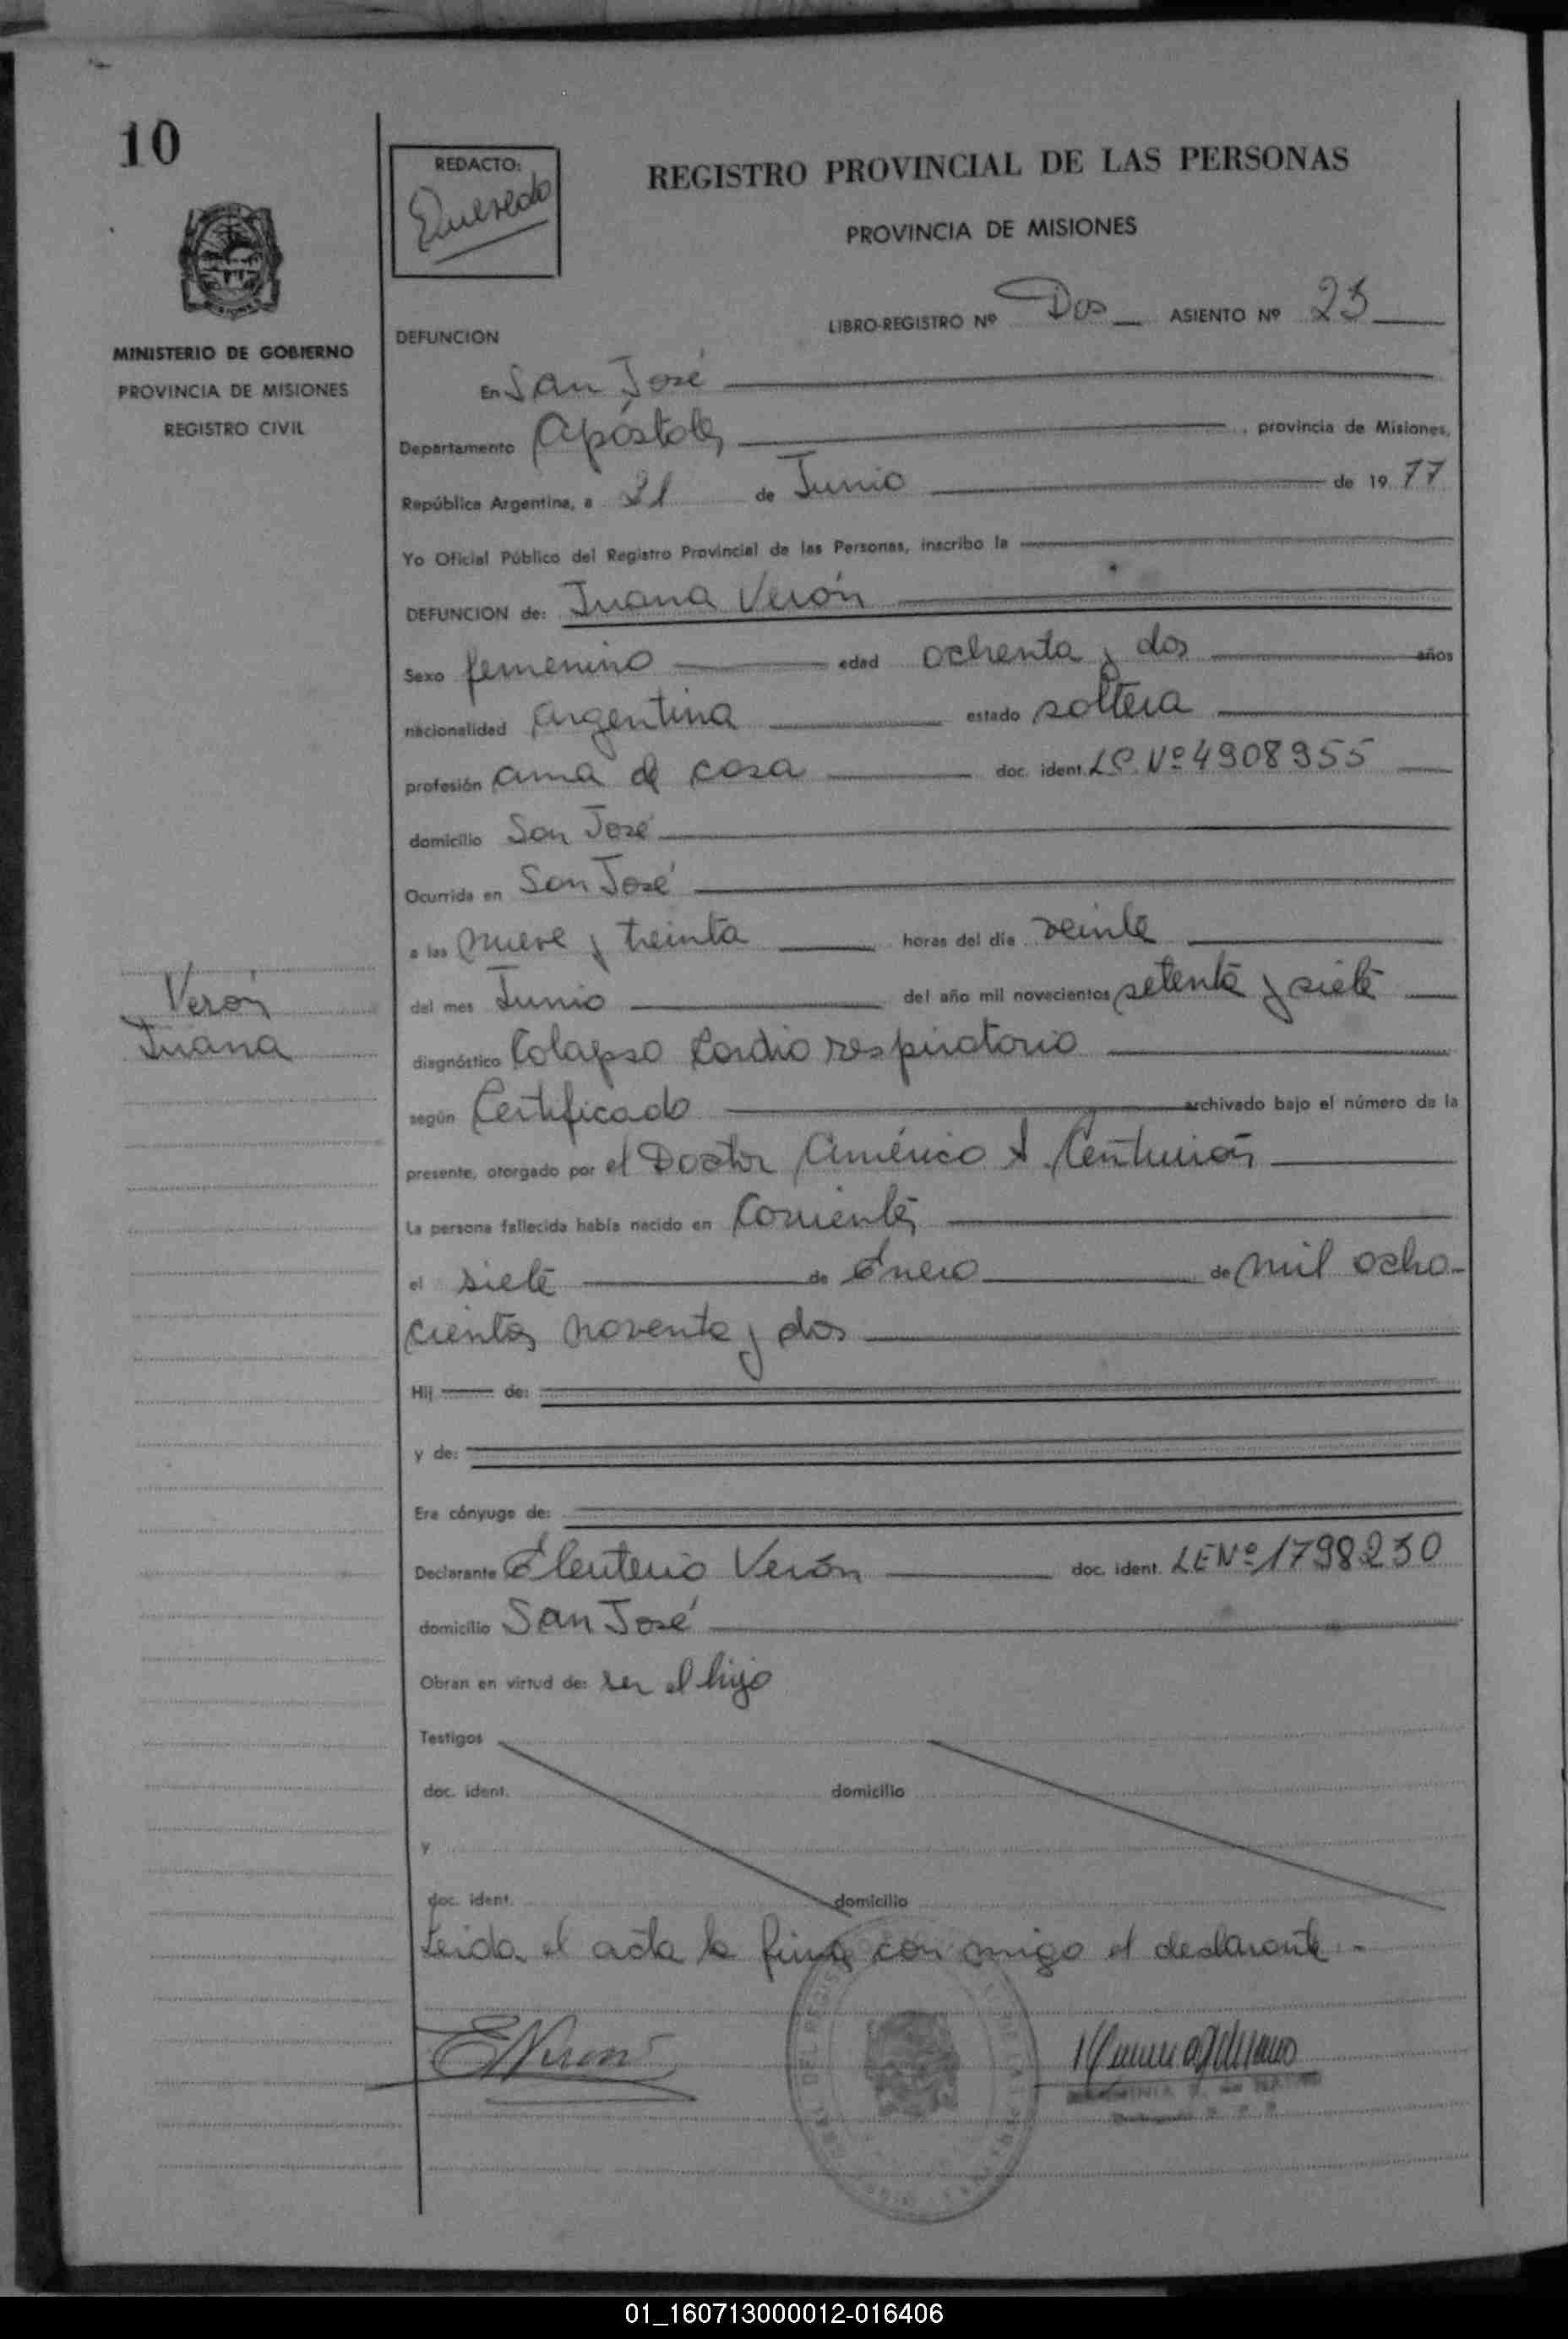 10
REDACTO:
Quevedo
REGISTRO PROVINCIAL DE LAS PERSONAS
PROVINCIA DE MISIONES
MINISTERIO DE GOBIERNO
PROVINCIA DE MISIONES
REGISTRO CIVIL
LIBRO-REGISTRO Nº Dos ASIENTO Nº 23
DEFUNCION
En San José
Departamento Apóstoles, provincia de Misiones,
República Argentina, a 21 de Junio de 1977
Yo Oficial Público del Registro Provincial de las Personas, inscribo la
DEFUNCION de: Juana Verón
Sexo femenino edad ochenta y dos años
nacionalidad argentina estado soltera
profesión ama de casa doc. ident. LC. Nº 4908955
domicilio San José
Ocurrida en San José
a las nueve y treinta horas del día veinte
Verón
Juana
del mes Junio del año mil novecientos setenta y siete
diagnóstico Colapso Cardio respiratorio
según Certificado archivado bajo el número de la
presente, otorgado por el Doctor Américo A. Centurión
La persona fallecida había nacido en Corrientes
el siete de Enero de mil ocho-
cientos noventa y dos
Hij de:
y de:
Era cónyuge de:
Declarante Eleuterio Verón doc. ident. LE Nº 1798230
domicilio San José
Obran en virtud de: ser el hijo
Testigos
doc. ident. domicilio
y
doc. ident. domicilio
Leida el acta la firma con migo el declarante.-
EVeron
01_160713000012-016406